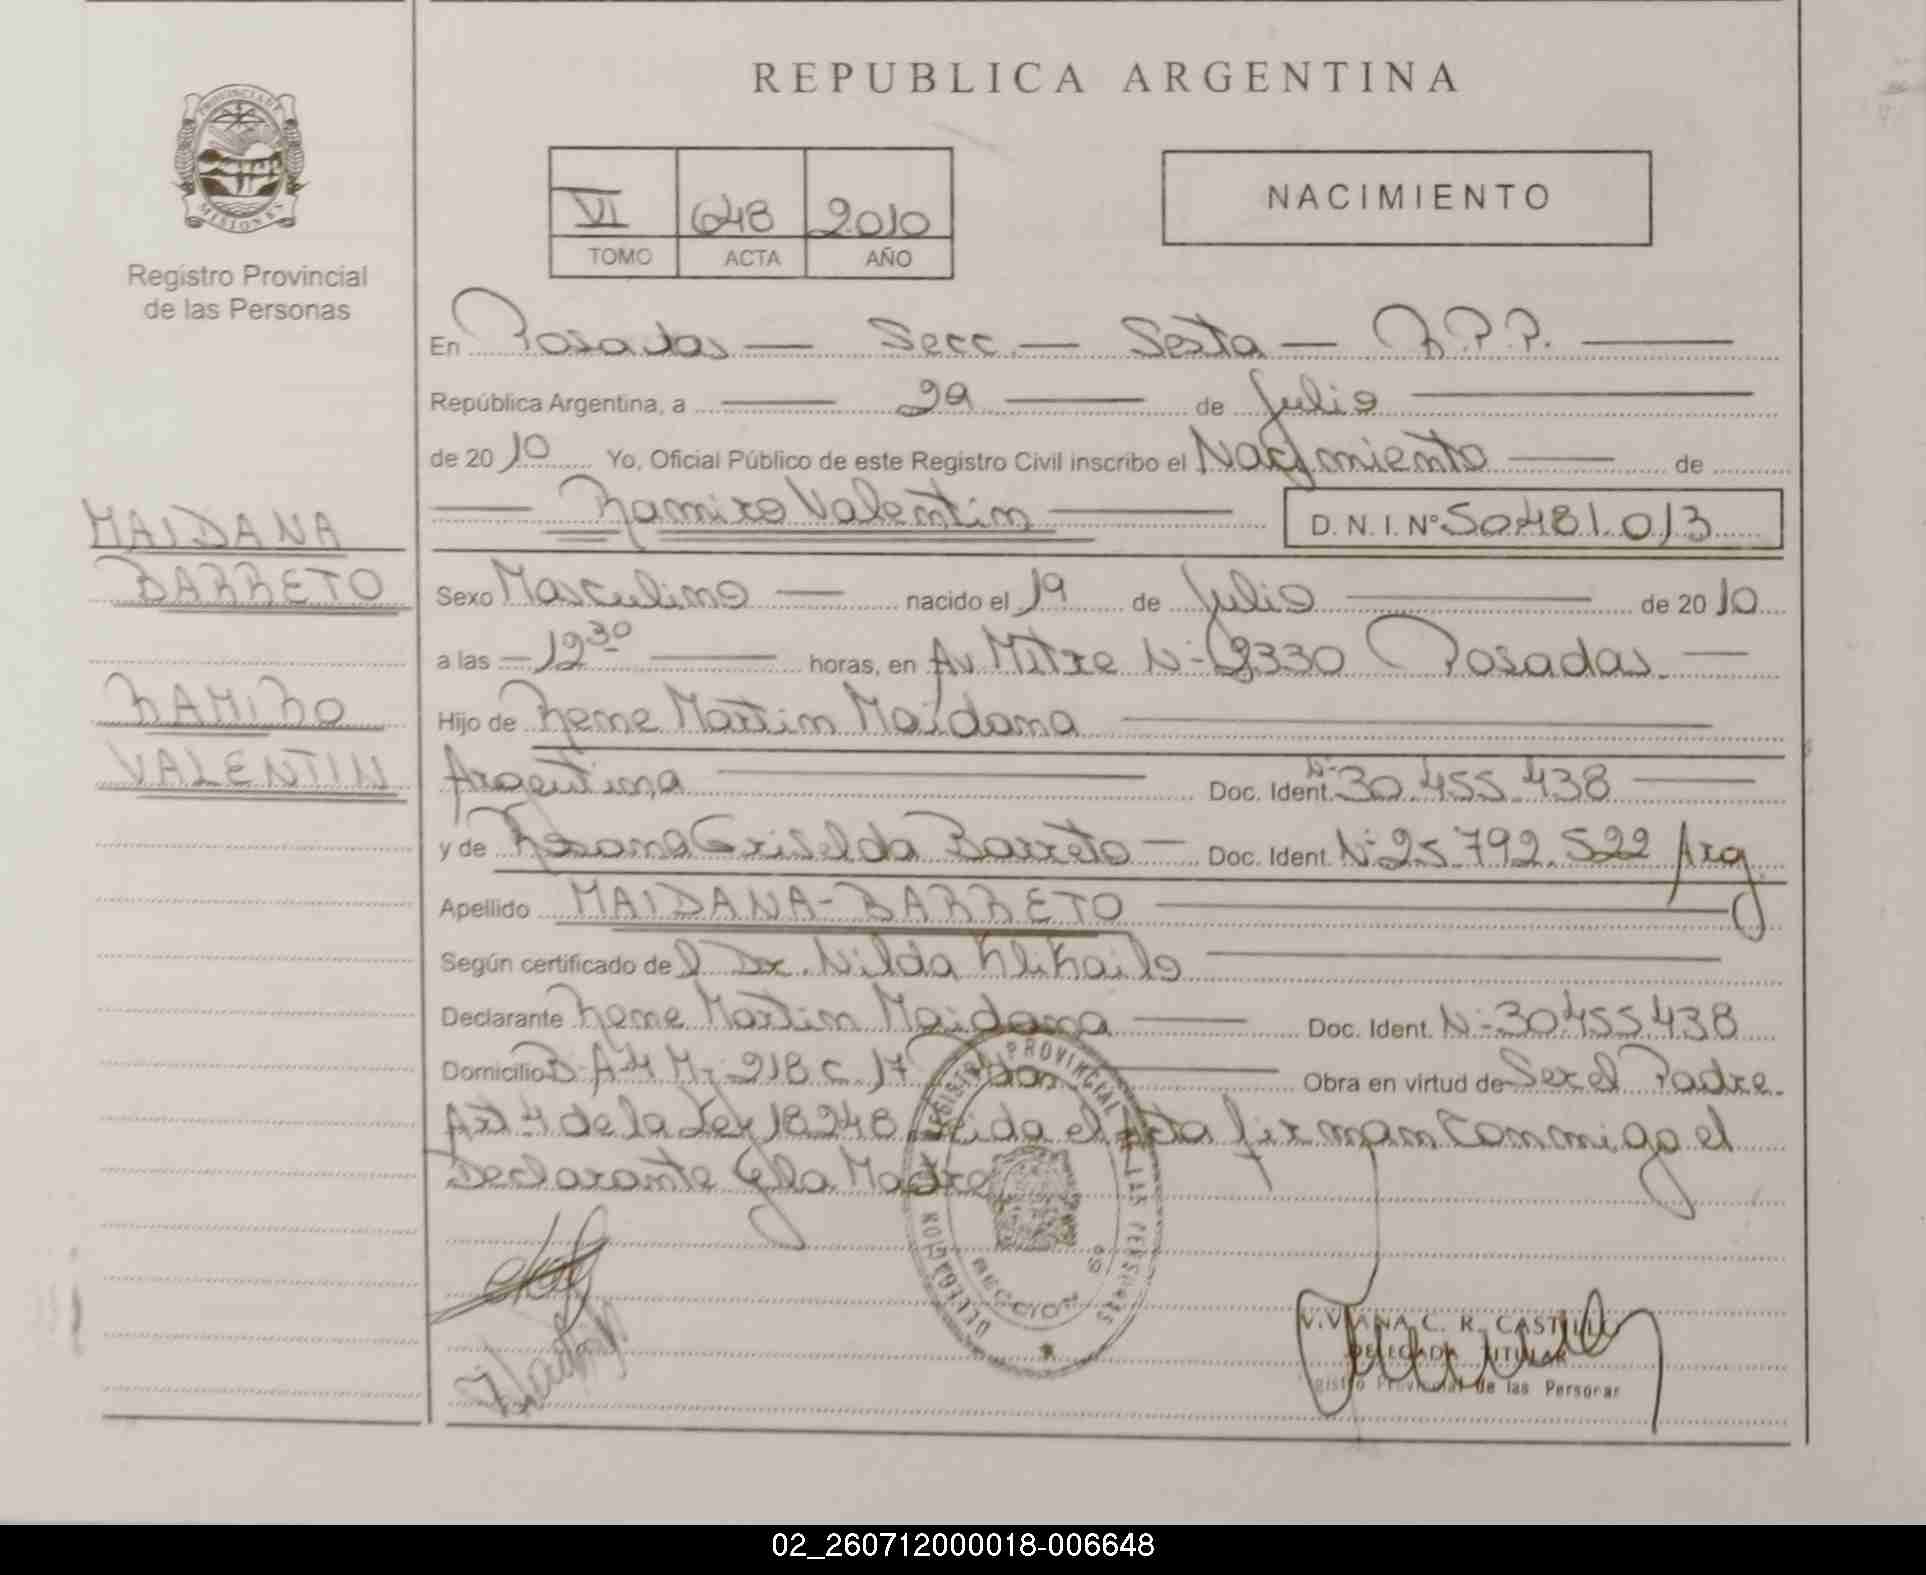 REPUBLICA ARGENTINA
PROVINCIA DE
MISIONES
Registro Provincial
de las Personas
VI 648 2010
TOMO ACTA AÑO
NACIMIENTO
En Posadas — Secc. — Sexta — R.P.P. —
República Argentina, a — 29 — de Julio —
de 2010 Yo, Oficial Público de este Registro Civil inscribo el Nacimiento — de
— Ramiro Valentin — D. N. I. Nº 50.481.013
MAIDANA
BARRETO
RAMIRO
VALENTIN
Sexo Masculino — nacido el 19 de Julio — de 2010
a las — 12 30 — horas, en Av Mitre N- 2330 Posadas. —
Hijo de Rene Martin Maidana —
Argentina — Doc. Ident. Nº 30.455.438 —
y de Rosana Griselda Barreto — Doc. Ident. Nº 25.792.522 Arg
Apellido MAIDANA-BARRETO —
Según certificado del Dr. Nilda —
Declarante Rene Martin Maidana — Doc. Ident. N- 30455438
Domicilio B. A-4 M- 218 C. 17 — Obra en virtud de Ser el Padre.
Art 4 de la Ley 18248 Leida el Acta firman Conmigo el
Declarante y la Madre
REGISTRO PROVINCIAL DE LAS PERSONAS
DELEGACION
SECCION 6ª
VIVIANA C. R. CASTILLO
DELEGADA TITULAR
Registro Provincial de las Personas
02_260712000018-006648